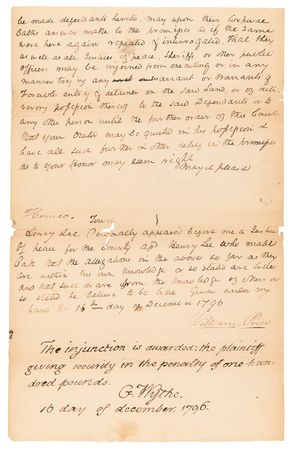 be made defendants hereto, may upon their Corporal
Oaths answer make to the premises as if the same
were here again repeated & interrogated that they
as well as all Justices of peace, Sheriffs or other public
officers may be enjoined from executing or in any
manner by any warrant or Warrants of
Forcible entry & detainer on the said Land or of deli-
vering possession thereof to the said Defendants or to
any other person until the further order of this Court
that your Orator may be quieted in his possession &
have all such further & other relief in the premises
as to your Honor may seem right
May it please
Henrico Town
Henry Lee Personally appeared before me a Justice
of peace for the County and Henry Lee who made
Oath that the allegations in the above so far as they
are within his own knowledge or so stated are true
and that such as are from the knowledge of others or
so stated he believes to be true Given under my
hand this 16th day of December 1796
William
The injunction is awarded; the plaintiff
giving security in the penalty of one hun-
dred pounds.
G. Wythe.
16 day of december, 1796.